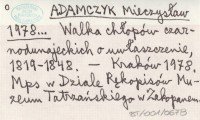 0
ADAMCZYK Mieczysław
1978... Walka chłopów czar-
nodunajeckich o uwłaszczenie,
1819-1848. — Kraków 1978.
Mps w Dziale Rękopisów Mu-
zeum Tatrzańskiego w Zakopanem
ST/001/0678